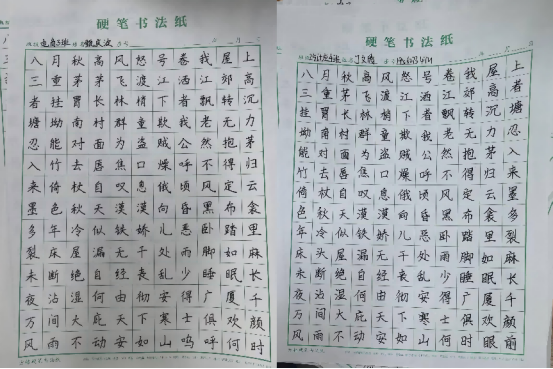 硬笔书法纸
八月秋高风怒号卷我屋上
三重茅茅飞渡江洒江郊高
者挂罥长林梢下者飘转沉
塘坳南村群童欺我老无力
忍能对面为盗贼公然抱茅
入竹去唇焦口燥呼不得归
来倚杖自叹息俄顷风定云
墨色秋天漠漠向昏黑布衾
多年冷似铁娇儿恶卧踏里
裂床屋漏无干处雨脚如麻
未断绝自经丧乱少睡眠长
夜沾湿何由彻安得广厦千
万间大庇天下寒士俱欢颜
风雨不动安如山呜呼何时
硬笔书法纸
八月秋高风怒号卷我屋上
三重茅飞渡江洒江郊高者
挂罥长林梢下者飘转沉塘
坳南村群童欺我老无力忍
能对面为盗贼公然抱茅入
竹去唇焦口燥呼不得归来
倚杖自叹息俄顷风定云墨
色秋天漠漠向昏黑布衾多
年冷似铁娇儿恶卧踏里裂
床头屋漏无干处雨脚如麻
未断绝自经丧乱少睡眠长
夜沾湿何由彻安得广厦千
万间大庇天下寒士俱欢颜
风雨不动安如山何时眼前